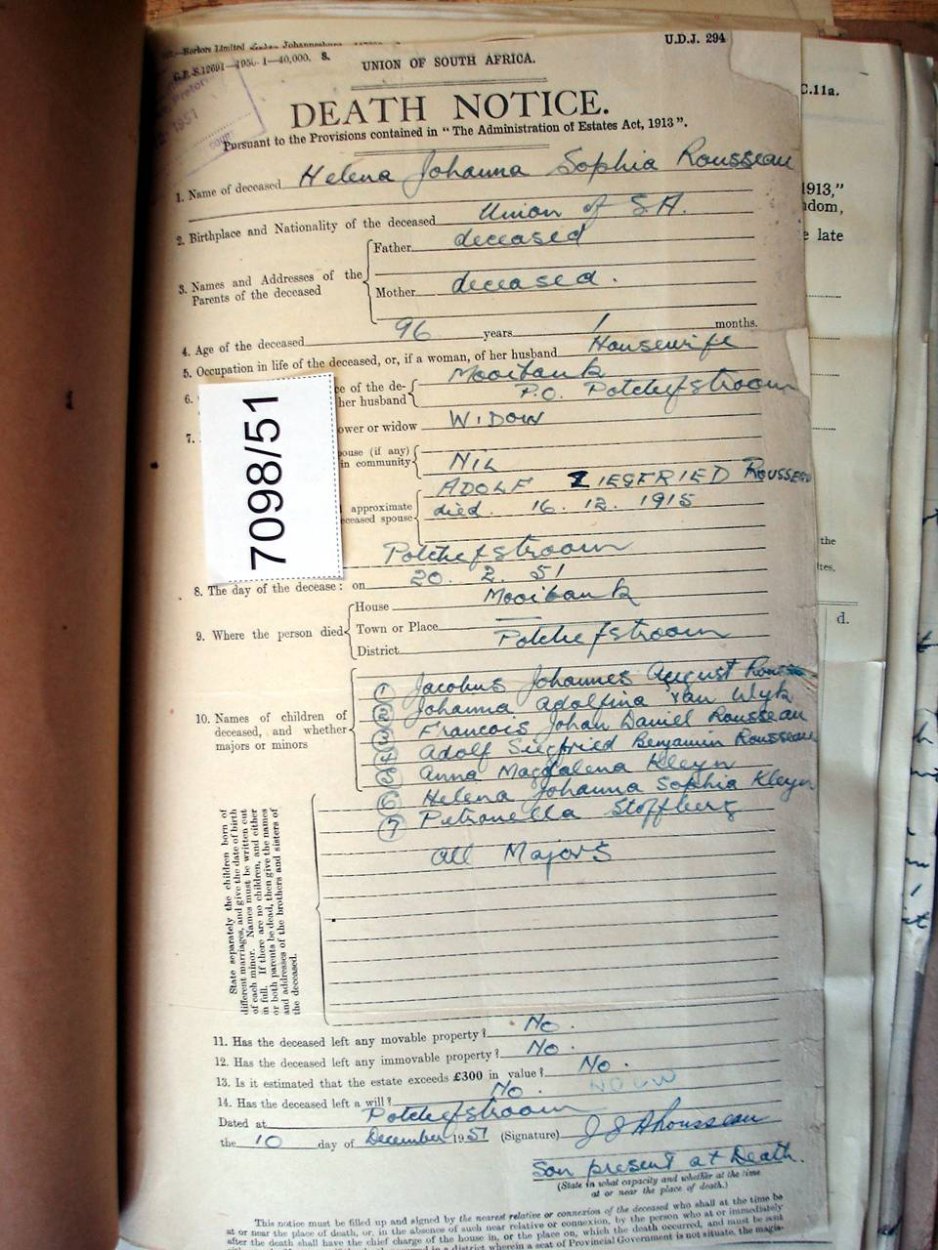 U.D.J. 294
UNION OF SOUTH AFRICA.
DEATH NOTICE.
Pursuant to the Provisions contained in "The Administration of Estates Act, 1913".
1. Name of deceased Helena Johanna Sophia Rousseau
2. Birthplace and Nationality of the deceased Union of S.A.
3. Names and Addresses of the Parents of the deceased
Father deceased
Mother deceased.
4. Age of the deceased 96 years 1 months.
5. Occupation in life of the deceased, or, if a woman, of her husband Housewife
6. ce of the de- her husband Mooibank
P.O. Potchefstroom
7. ower or widow Widow
ouse (if any) in community Nil
ADOLF ZIEGFRIED ROUSSEAU
approximate ceased spouse died. 16. 12. 1915
Potchefstroom
8. The day of the decease: on 20. 2. 51
9. Where the person died
House Mooibank
Town or Place
District Potchefstroom
10. Names of children of deceased, and whether majors or minors
1 Jacobus Johannes August
2 Johanna Adolfina van Wyk
3 Francois Johan Daniel Rousseau
4 Adolf Siegfried Benjamin Rousseau
5 Anna Magdalena Kleyn
6 Helena Johanna Sophia Kleyn
7 Petronella Stoffberg
all Majors
State separately the children born of
different marriages, and give the date of birth
of each minor. Names must be written out
in full. If there are no children, and either
or both parents be dead, then give the names
and addresses of the brothers and sisters of
the deceased.
11. Has the deceased left any movable property? No.
12. Has the deceased left any immovable property? No.
13. Is it estimated that the estate exceeds £300 in value? No.
14. Has the deceased left a will? No.
Dated at Potchefstroom
the 10 day of December 1951 (Signature) J J A Rousseau
Son present at Death.
(State in what capacity and whether at the time
at or near the place of death.)
This notice must be filled up and signed by the nearest relative or connexion of the deceased who shall at the time be
at or near the place of death, or, in the absence of such near relative or connexion, by the person who at or immediately
after the death shall have the chief charge of the house in, or the place on, which the death occurred, and must be sent
7098/51
C.11a.
1913,"
dom,
e late
the
d.